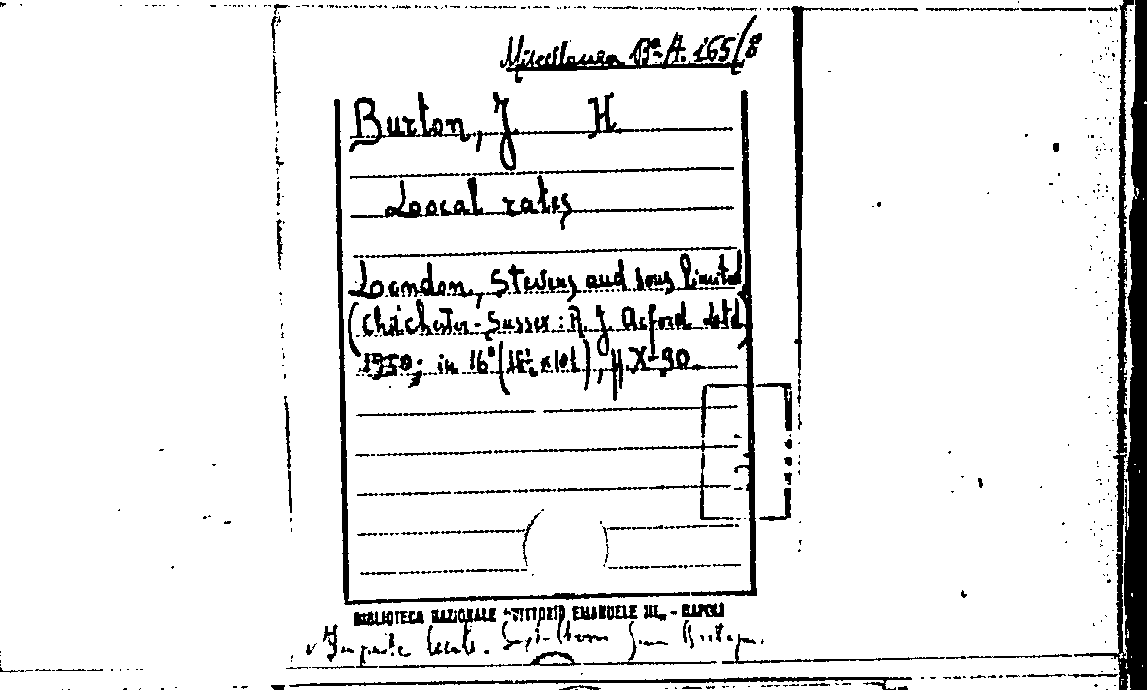 Miscellanea Bª A. 165/8
Burton, J. H.
Local rates
London, Stevens and sons limited
(Chichester-Sussex: R. J. Acford Ltd)
1950; in 16° (16½ x 10½), p. X-90.
BIBLIOTECA NAZIONALE "VITTORIO EMANUELE III" - NAPOLI
Imposte locali.